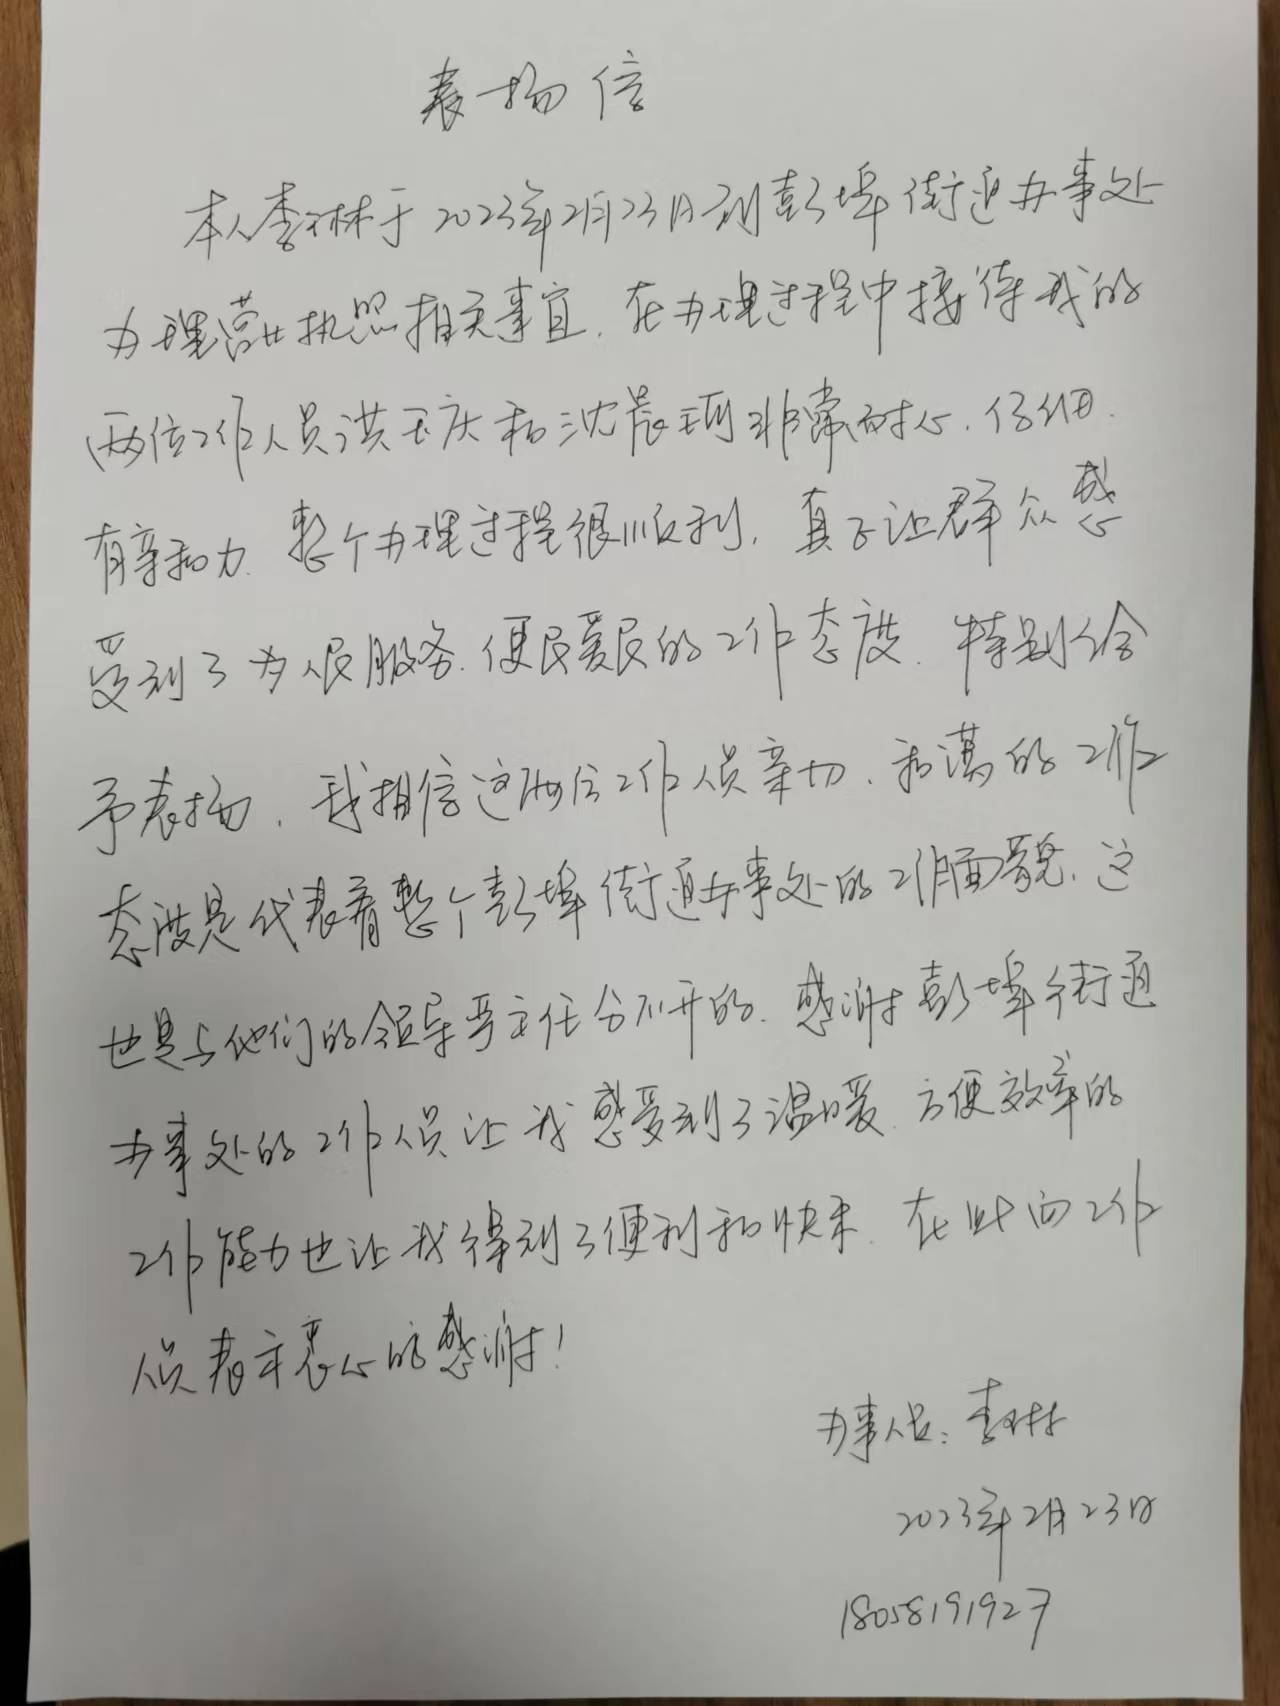 表扬信
本人李林于2023年2月23日到彭埠街道办事处
办理营业执照相关事宜.在办理过程中接待我的
两位工作人员洪玉庆和沈晨珂非常耐心.仔细.
有亲和力.整个办理过程很顺利,真正让群众感
受到了为人民服务.便民爱民的工作态度.特别给
予表扬.我相信这两位工作人员亲切.和蔼的工作
态度是代表着整个彭埠街道办事处的工作面貌.这
也是与他们的领导严主任分不开的.感谢彭埠街道
办事处的工作人员让我感受到了温暖.方便效率的
工作能力也让我得到了便利和快乐.在此向工作
人员表示衷心的感谢!
办事人员:李林
2023年2月23日
18058191927